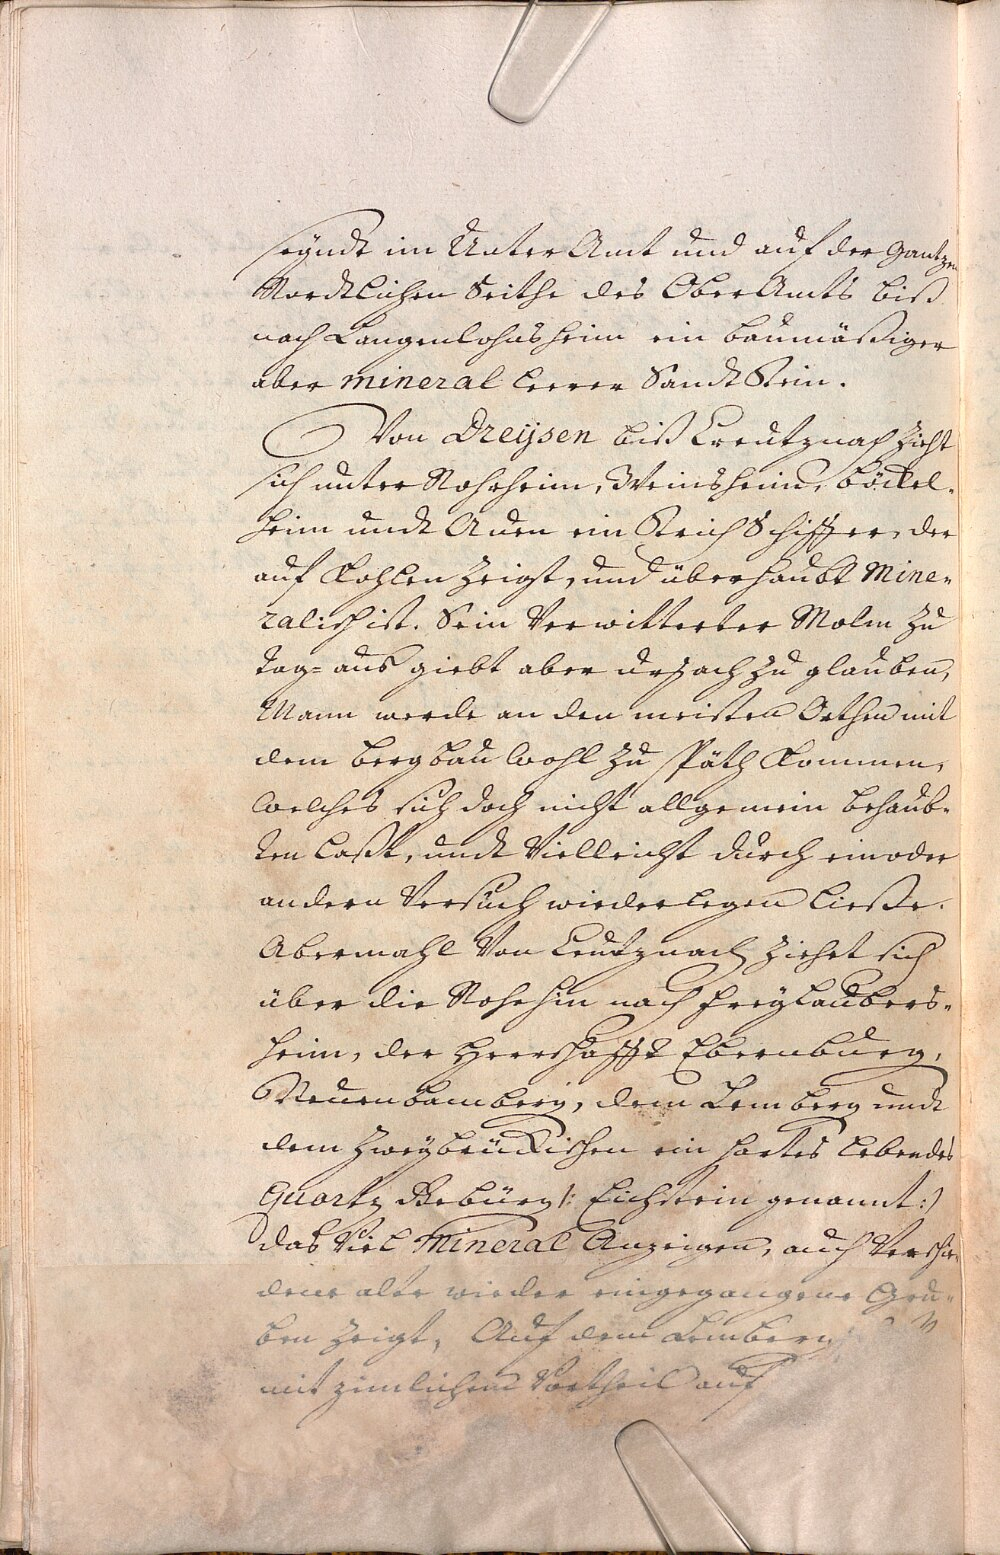 seyndt im Unter Amt und auf der Gantzen
Nordtlichen Seithe des Ober Amts biß
nach Langenlohnsheim ein baumäßiger
aber mineral leerer Sandt Stein.
Von Dreÿsen biß Creutznach Zieht
sich unter Roxheim, Weinsheim, böckel-
heim undt Auen ein Strich Schiffer, der
auf Kohlen Zeigt, und überhaubt Mine-
ralisch ist. Sein Verwitterter Molm Zu
tag-aus giebt aber ursach zu glauben,
Mann werde an den meisten Orthen mit
dem bergbau wohl zu späth kommen,
welches sich doch nicht allgemein behaub-
ten Laßt, undt Vielleicht durch ein oder
andern Versuch wiederlegen Ließe.
Abermahl Von Creutznach Ziehet sich
über die Nohe hin nach freÿlaubers-
heim, der Herrschafft Ebernburg,
Neuenbamberg, dem Lemberg undt
dem Zweÿbrückischen ein hartes Lebendes
Quartz Gebürg /: Eichstein genannt :/
das Viel Mineral Anzeigen, auch Verschie-
dene alte wieder eingegangene Gru-
ben Zeigt, Auf dem Lemberg
mit zimlichem Vortheil auf